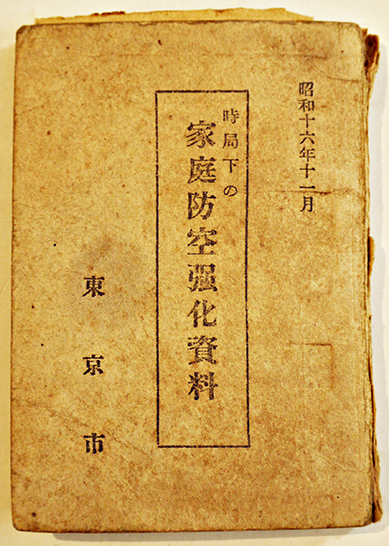 昭和十六年十一月
時局下の
家庭防空强化資料
東京市